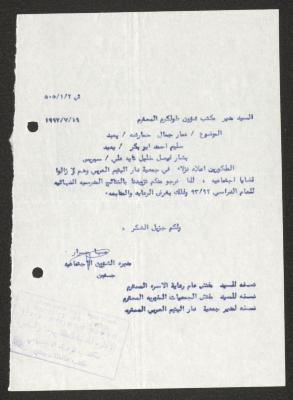 ش ٥٠٥/١/٢
١٩٩٣/٧/١٩
السيد مدير مكتب شؤون طولكرم المحترم
الموضوع / عمار جمال حمارشه / يعبد
سليم احمد ابو بكر / يعبد
بشار فيصل خليل تايه علي / سيريس
المذكورين اعلاه نزلاء في جمعية دار اليتيم العربي وهم لا زالوا
قضايا اجتماعيه ، لذا نرجو منكم تزويدنا بالنتائج المدرسيه النهائيه
للعام الدراسي ٩٣/٩٢ وذلك بغرض الرعايه والمتابعه
ولكم جزيل الشكر ،
مديره الشؤون الاجتماعيه
جنين
نسخه للسيد مفتش عام رعاية الاسره المحترم
نسخه للسيد مفتش الجمعيات الخيريه المحترم
نسخه لمدير جمعية دار اليتيم العربي المحترم